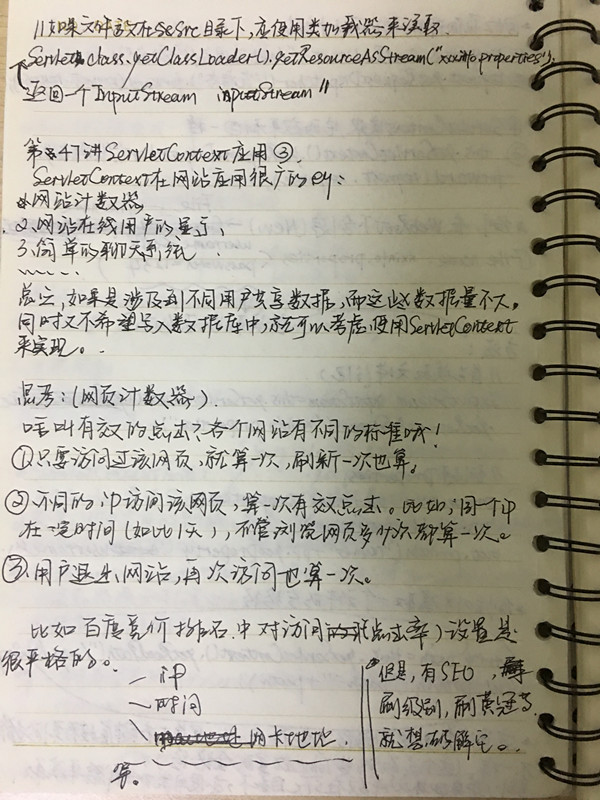 //如果文件放在Src目录下,应使用类加载器来读取.
Servlet.class.getClassLoader().getResourceAsStream("xxinfo.properties");
返回一个InputStream inputStream"
第47讲ServletContext应用③.
ServletContext在网站应用很广的eg:
1.网站计数器
2.网站在线用户的显示;
3.简单的聊天系统
总之,如果是涉及到不同用户共享数据,而这些数据量不大,
同时又不希望写入数据库中,就可以考虑使用ServletContext
来实现。
思考:(网页计数器).
啥叫有效的点击?各个网站有不同的标准哦!
①只要访问过该网页,就算一次,刷新一次也算.
②不同的ip访问该网页,算一次有效点击。比如:同一个ip
在一定时间(如比1天),不管浏览网页多少次都算一次。
③用户退出网站,再次访问也算一次。
比如百度竞价排名,中对访问点击率)设置是
很严格的。
ip
时间
网卡地址.
等.
但是,有SEO,
刷级别,刷
就想破解它。